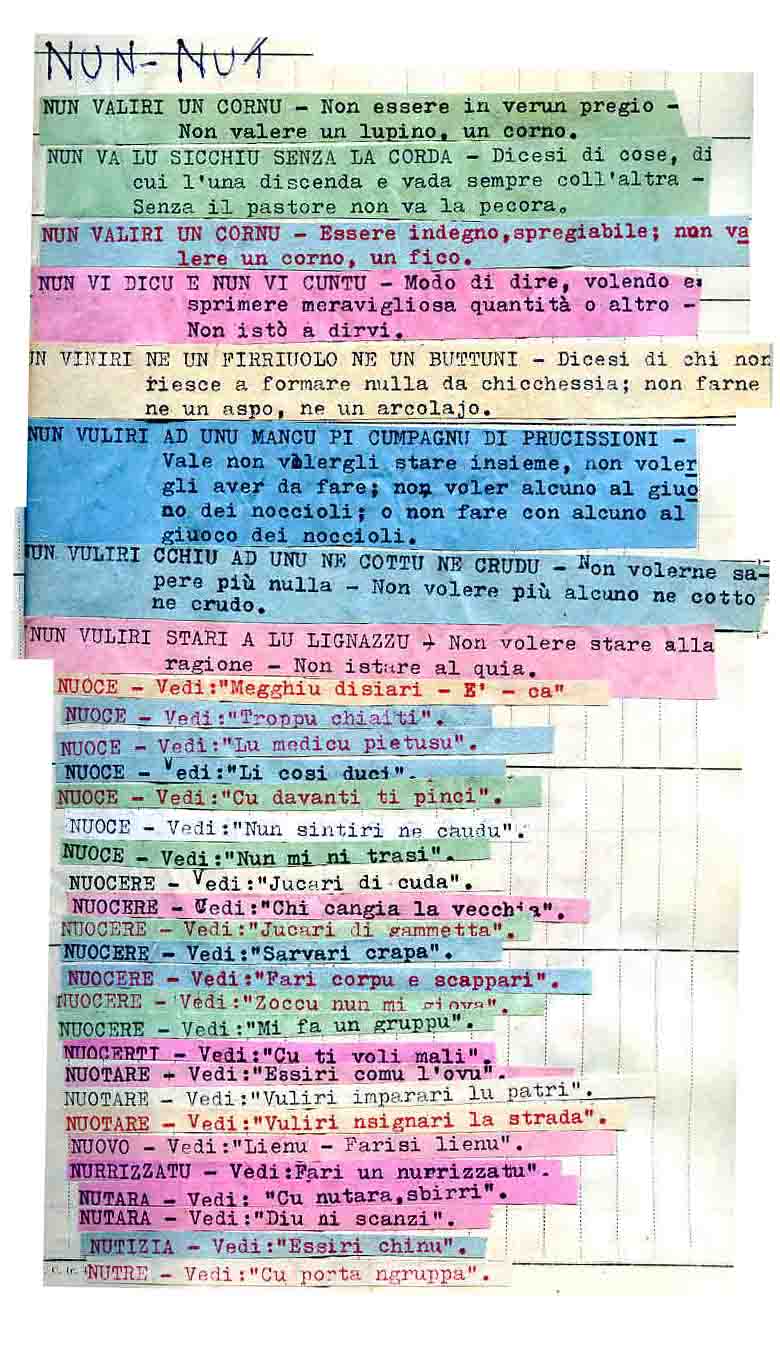 NUN-NUT
NUN VALIRI UN CORNU - Non essere in verun pregio -
Non valere un lupino, un corno.
NUN VA LU SICCHIU SENZA LA CORDA - Dicesi di cose, di
cui l'una discenda e vada sempre coll'altra -
Senza il pastore non va la pecora.
NUN VALIRI UN CORNU - Essere indegno,spregiabile; non va
lere un corno, un fico.
NUN VI DICU E NUN VI CUNTU - Modo di dire, volendo e
sprimere meravigliosa quantità o altro -
Non istò a dirvi.
UN VINIRI NE UN FIRRIUOLO NE UN BUTTUNI - Dicesi di chi non
riesce a formare nulla da chicchessia; non farne
ne un aspo, ne un arcolajo.
NUN VULIRI AD UNU MANCU PI CUMPAGNU DI PRUCISSIONI -
Vale non volergli stare insieme, non voler
gli aver da fare; non voler alcuno al giuo
no dei noccioli; o non fare con alcuno al
giuoco dei noccioli.
NUN VULIRI CCHIU AD UNU NE COTTU NE CRUDU - Non volerne sa-
pere più nulla - Non volere più alcuno ne cotto
ne crudo.
NUN VULIRI STARI A LU LIGNAZZU - Non volere stare alla
ragione - Non istare al quia.
NUOCE - Vedi:"Megghiu disiari - E' - ca"
NUOCE - Vedi:"Troppu chiaiti".
NUOCE - Vedi:"Lu medicu pietusu".
NUOCE - Vedi:"Li cosi duci".
NUOCE - Vedi:"Cu davanti ti pinci".
NUOCE - Vedi:"Nun sintiri ne caudu".
NUOCE - Vedi:"Nun mi ni trasi".
NUOCERE - Vedi:"Jucari di cuda".
NUOCERE - Vedi:"Chi cangia la vecchia".
NUOCERE - Vedi:"Jucari di gammetta".
NUOCERE - Vedi:"Sarvari crapa".
NUOCERE - Vedi:"Fari corpu e scappari".
NUOCERE - Vedi:"Zoccu nun mi giova".
NUOCERE - Vedi:"Mi fa un gruppu".
NUOCERTI - Vedi:"Cu ti voli mali".
NUOTARE - Vedi:"Essiri comu l'ovu".
NUOTARE - Vedi:"Vuliri imparari lu patri".
NUOTARE - Vedi:"Vuliri nsignari la strada".
NUOVO - Vedi:"Lienu - Farisi lienu".
NURRIZZATU - Vedi:Fari un nurrizzatu".
NUTARA - Vedi: "Cu nutara,sbirri".
NUTARA - Vedi:"Diu ni scanzi".
NUTIZIA - Vedi:"Essiri chinu".
NUTRE - Vedi:"Cu porta ngruppa".